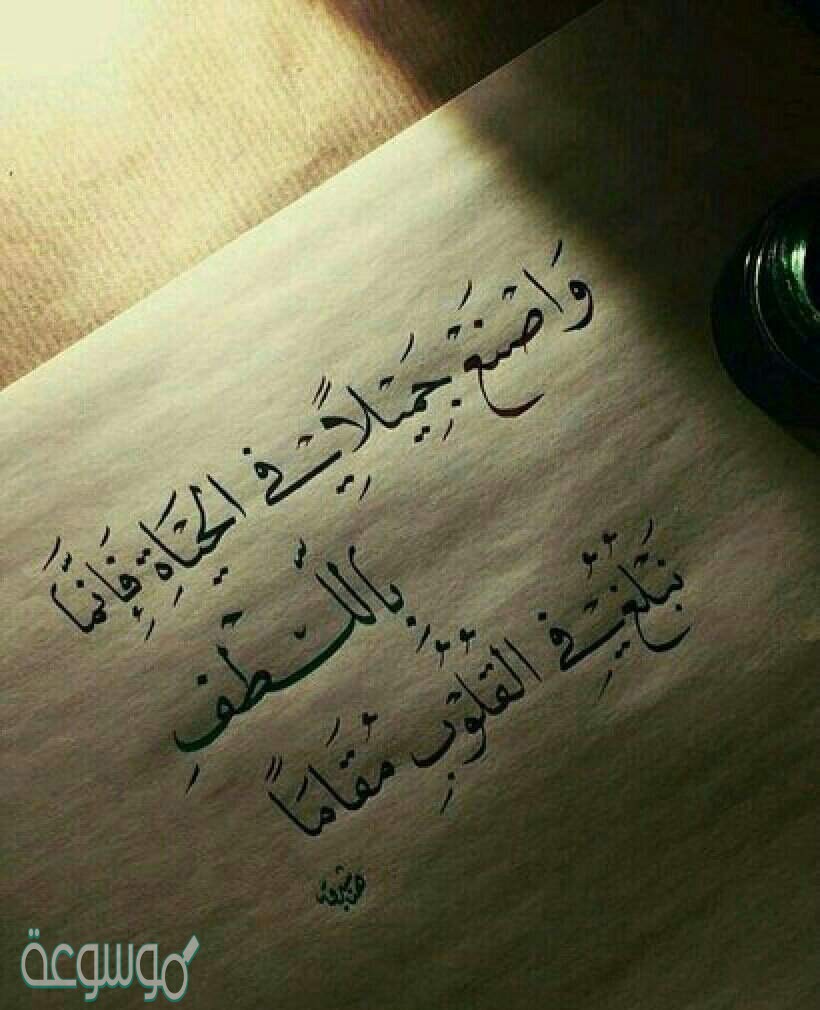 وَاصْنَعْ جَمِيْلاً فِيْ الحَيَاةِ فَإِنَّمَا
بِاللُّطْفِ
نَبْلُغُ فِيْ القُلُوْبِ مُقَامَاً
موسوعة